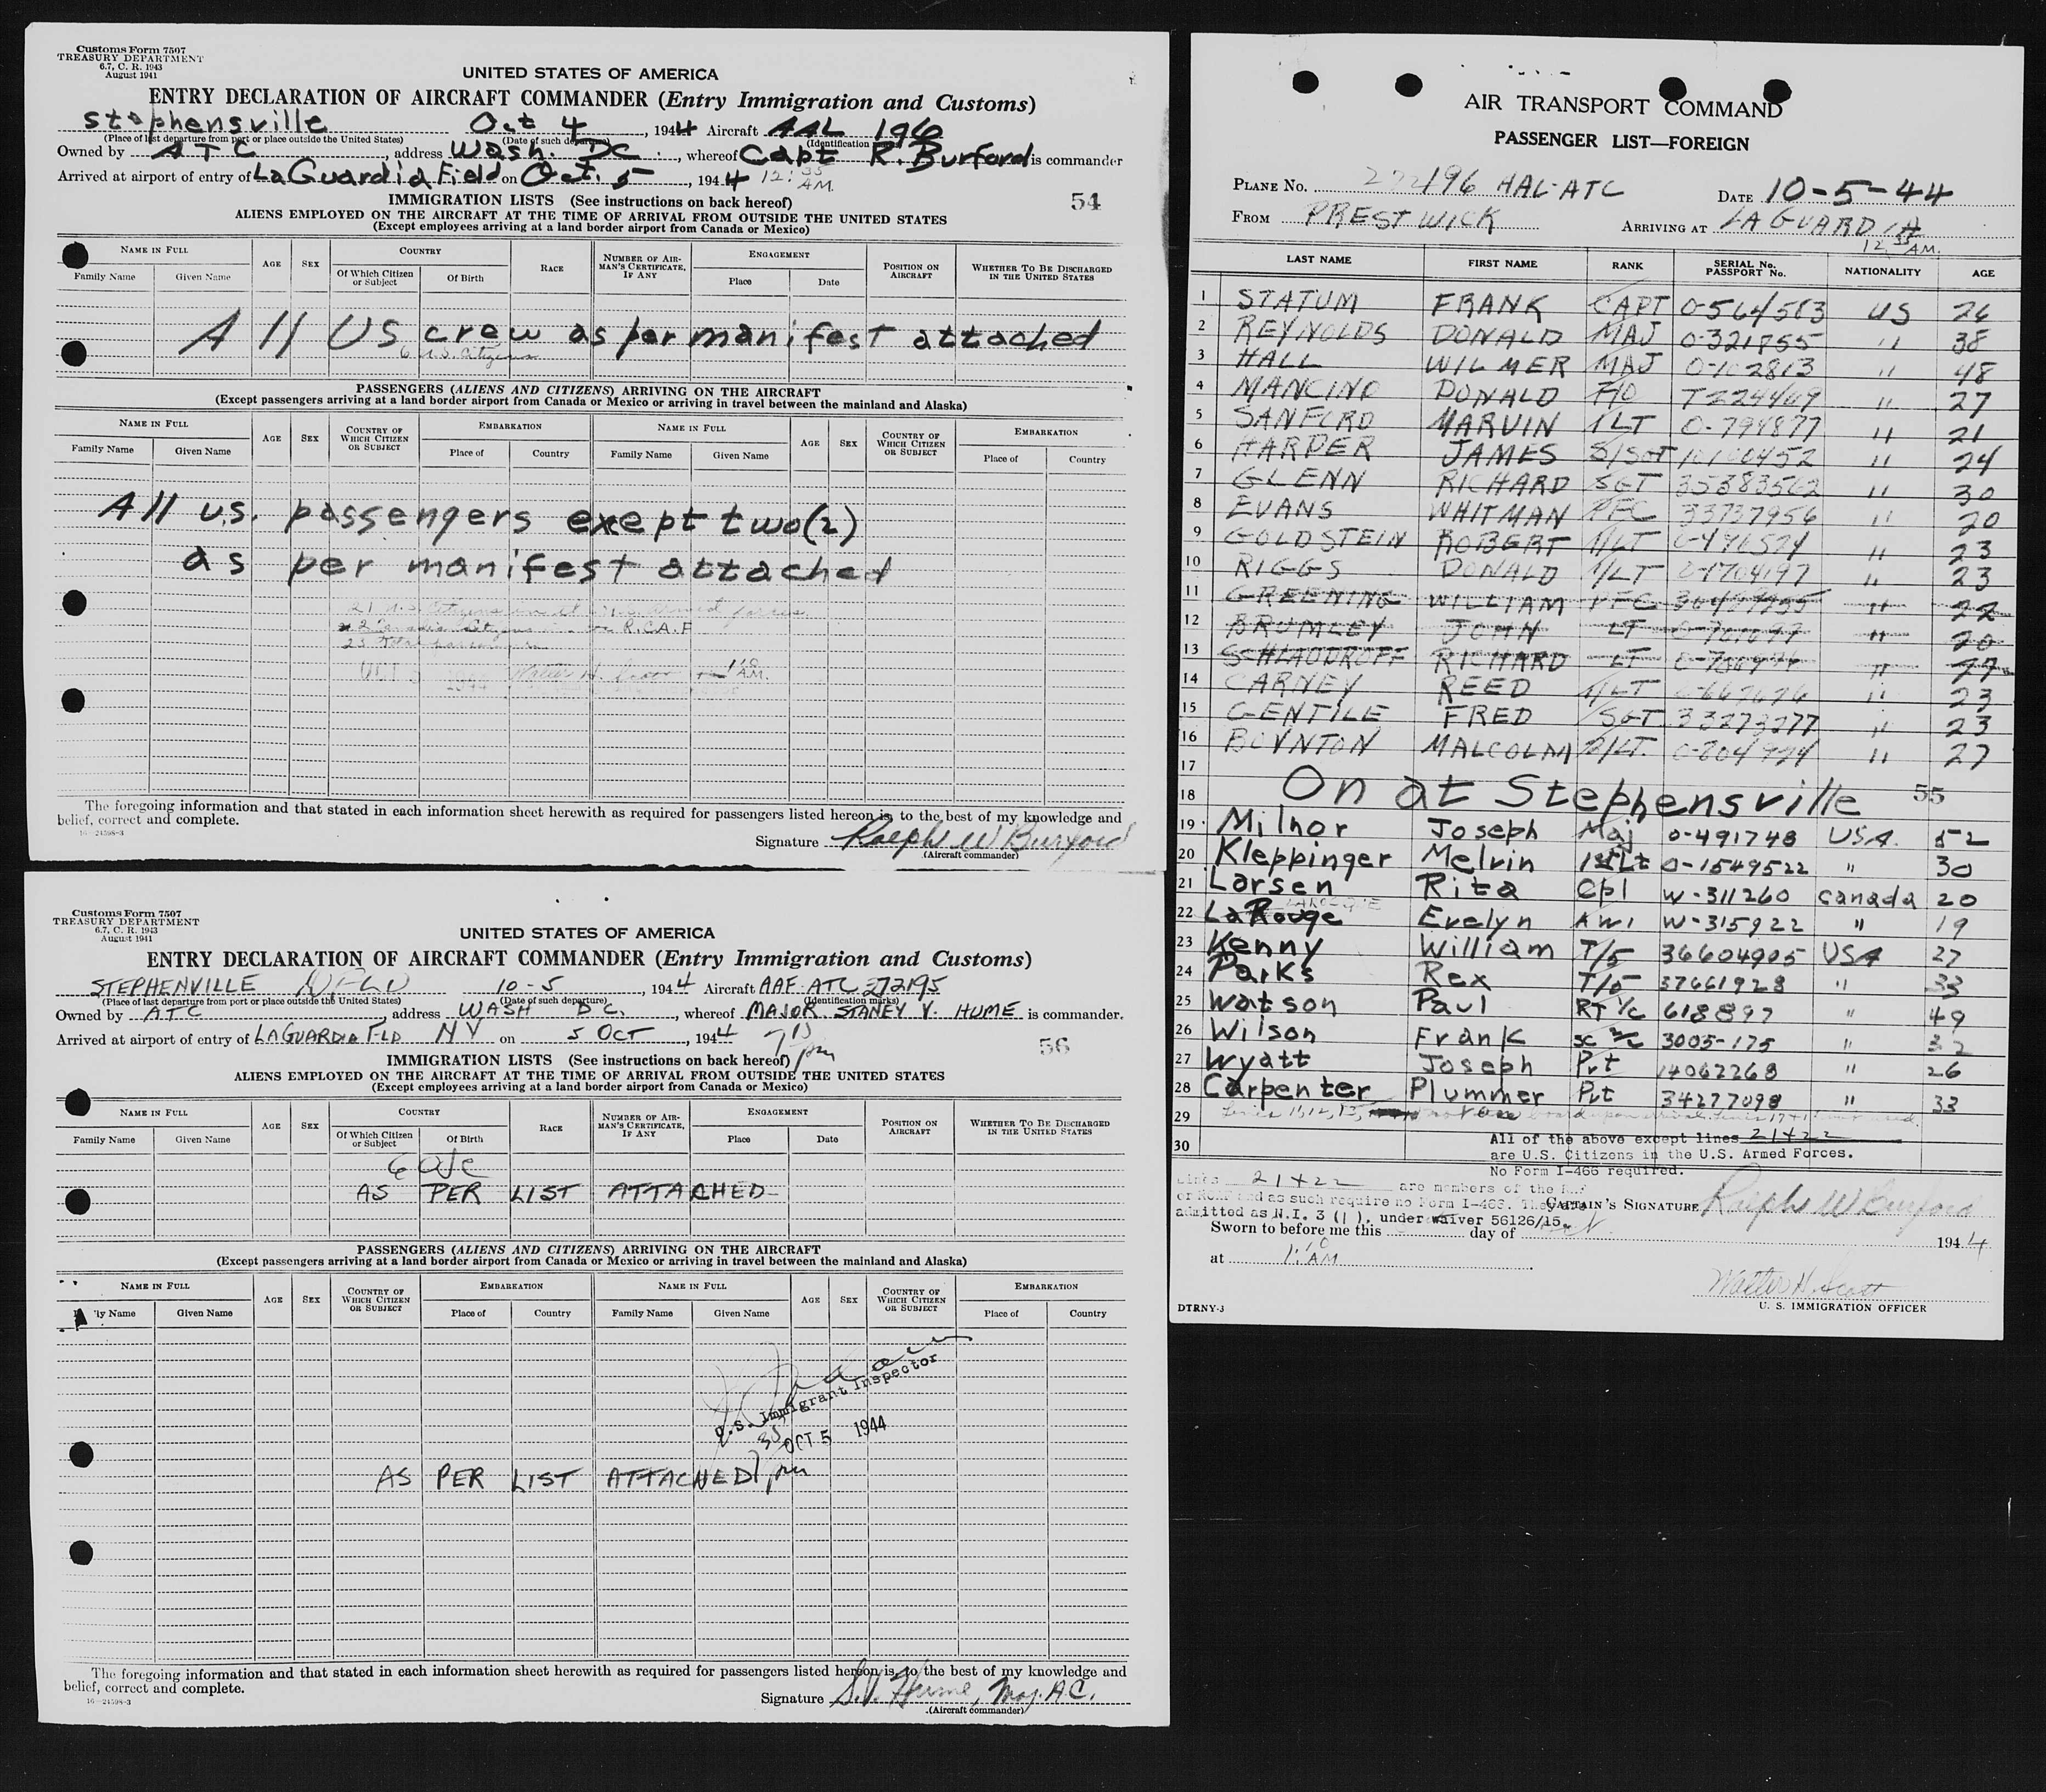 Customs Form 7507
TREASURY DEPARTMENT
6.7, C. R. 1943
August 1941
UNITED STATES OF AMERICA
ENTRY DECLARATION OF AIRCRAFT COMMANDER (Entry Immigration and Customs)
Stephensville Oct 4, 1944 Aircraft AAL 196
(Place of last departure from port or place outside the United States) (Date of such departure) (Identification marks)
Owned by ATC, address Wash. DC., whereof Capt R. Burford is commander
Arrived at airport of entry of LaGuardia Field on Oct. 5, 1944 12:35 AM.
IMMIGRATION LISTS (See instructions on back hereof) 54
ALIENS EMPLOYED ON THE AIRCRAFT AT THE TIME OF ARRIVAL FROM OUTSIDE THE UNITED STATES
(Except employees arriving at a land border airport from Canada or Mexico)
NAME IN FULL AGE SEX COUNTRY RACE NUMBER OF AIRMAN'S CERTIFICATE, IF ANY ENGAGEMENT POSITION ON AIRCRAFT WHETHER TO BE DISCHARGED IN THE UNITED STATES
Family Name Given Name Of Which Citizen or Subject Of Birth Place Date
All US crew as per manifest attached
6 U.S. Citizens
PASSENGERS (ALIENS AND CITIZENS) ARRIVING ON THE AIRCRAFT
(Except passengers arriving at a land border airport from Canada or Mexico or arriving in travel between the mainland and Alaska)
NAME IN FULL AGE SEX COUNTRY OF WHICH CITIZEN OR SUBJECT EMBARKATION NAME IN FULL AGE SEX COUNTRY OF WHICH CITIZEN OR SUBJECT EMBARKATION
Family Name Given Name Place of Country Family Name Given Name Place of Country
All U.S. passengers exept two(2)
as per manifest attached
21 U.S. Citizens armed forces
2 Citizens R.C.A.F
23 Total
OCT 5 1944 Walter H. Scott 1:10 AM.
The foregoing information and that stated in each information sheet herewith as required for passengers listed hereon is, to the best of my knowledge and
belief, correct and complete.
16-24598-3
Signature Ralph W Burford
(Aircraft commander)
Customs Form 7507
TREASURY DEPARTMENT
6.7, C. R. 1943
August 1941
UNITED STATES OF AMERICA
ENTRY DECLARATION OF AIRCRAFT COMMANDER (Entry Immigration and Customs)
STEPHENVILLE NFLD 10-5, 1944 Aircraft AAF ATC 272195
(Place of last departure from port or place outside the United States) (Date of such departure) (Identification marks)
Owned by ATC, address WASH D.C., whereof MAJOR STANEY V. HUME is commander.
Arrived at airport of entry of LAGUARDIA FLD NY on 5 OCT, 1944 7 15 pm
IMMIGRATION LISTS (See instructions on back hereof) 56
ALIENS EMPLOYED ON THE AIRCRAFT AT THE TIME OF ARRIVAL FROM OUTSIDE THE UNITED STATES
(Except employees arriving at a land border airport from Canada or Mexico)
NAME IN FULL AGE SEX COUNTRY RACE NUMBER OF AIRMAN'S CERTIFICATE, IF ANY ENGAGEMENT POSITION ON AIRCRAFT WHETHER TO BE DISCHARGED IN THE UNITED STATES
Family Name Given Name Of Which Citizen or Subject Of Birth Place Date
AS PER LIST ATTACHED
PASSENGERS (ALIENS AND CITIZENS) ARRIVING ON THE AIRCRAFT
(Except passengers arriving at a land border airport from Canada or Mexico or arriving in travel between the mainland and Alaska)
NAME IN FULL AGE SEX COUNTRY OF WHICH CITIZEN OR SUBJECT EMBARKATION NAME IN FULL AGE SEX COUNTRY OF WHICH CITIZEN OR SUBJECT EMBARKATION
ly Name Given Name Place of Country Family Name Given Name Place of Country
U.S. Immigrant Inspector
OCT 5 1944
AS PER LIST ATTACHED
The foregoing information and that stated in each information sheet herewith as required for passengers listed hereon is, to the best of my knowledge and
belief, correct and complete.
16-24598-3
Signature S.V. Hume, Maj. A.C.
(Aircraft commander)
AIR TRANSPORT COMMAND
PASSENGER LIST—FOREIGN
PLANE No. 272196 HAL-ATC DATE 10-5-44
FROM PRESTWICK ARRIVING AT LA GUARDIA
12 35 AM.
LAST NAME FIRST NAME RANK SERIAL No. PASSPORT No. NATIONALITY AGE
1 STATUM FRANK CAPT 0-564513 US 26
2 REYNOLDS DONALD MAJ 0-321855 " 38
3 HALL WILMER MAJ 0-102813 " 48
4 MANCINO DONALD F/O T224469 " 27
5 SANFORD MARVIN 1LT 0-794877 " 21
6 HARPER JAMES S/SGT 10100452 " 24
7 GLENN RICHARD SGT 35383562 " 30
8 EVANS WHITMAN PFC 33737956 " 20
9 GOLDSTEIN ROBERT 1/LT " 23
10 RIGGS DONALD 1/LT 0-1704197 " 23
11 GREENING WILLIAM PFC " 22
12 BRUMLEY JOHN LT " 20
13 SCHLAUDROFF RICHARD LT " 27
14 CARNEY REED 1/LT " 23
15 GENTILE FRED SGT 33273277 " 23
16 BOYNTON MALCOLM 2/LT. 0-804924 " 27
17
18 On at Stephensville 55
19 Milnor Joseph Maj 0-491748 USA. 52
20 Kleppinger Melvin 1st Lt 0-1549522 " 30
21 Larsen Rita Cpl W-311260 Canada 20
LAROCQUE
22 LaRouge Evelyn AW1 W-315922 " 19
23 Kenny William T/5 36604905 USA 27
24 Parks Rex T/5 37661928 " 33
25 Watson Paul RT 1/c 618897 " 49
26 Wilson Frank SC 2/c 3005-175 " 32
27 Wyatt Joseph Pvt 14062268 " 26
28 Carpenter Plummer Pvt 34277098 " 33
29 Lines 11, 12, 13, not on board upon arrival. Lines 17 + 18 not used.
30 All of the above except lines 21+22
are U.S. Citizens in the U.S. Armed Forces.
No Form I-466 required.
Lines 21+22 are members of the RAF
or RCAF and as such require no Form I-466. They are
CAPTAIN'S SIGNATURE Ralph W Burford
admitted as N.I. 3 (1), under waiver 56126/15.
Sworn to before me this day of 1944
at 1:10 AM
Walter H. Scott
U. S. IMMIGRATION OFFICER
DTRNY-3